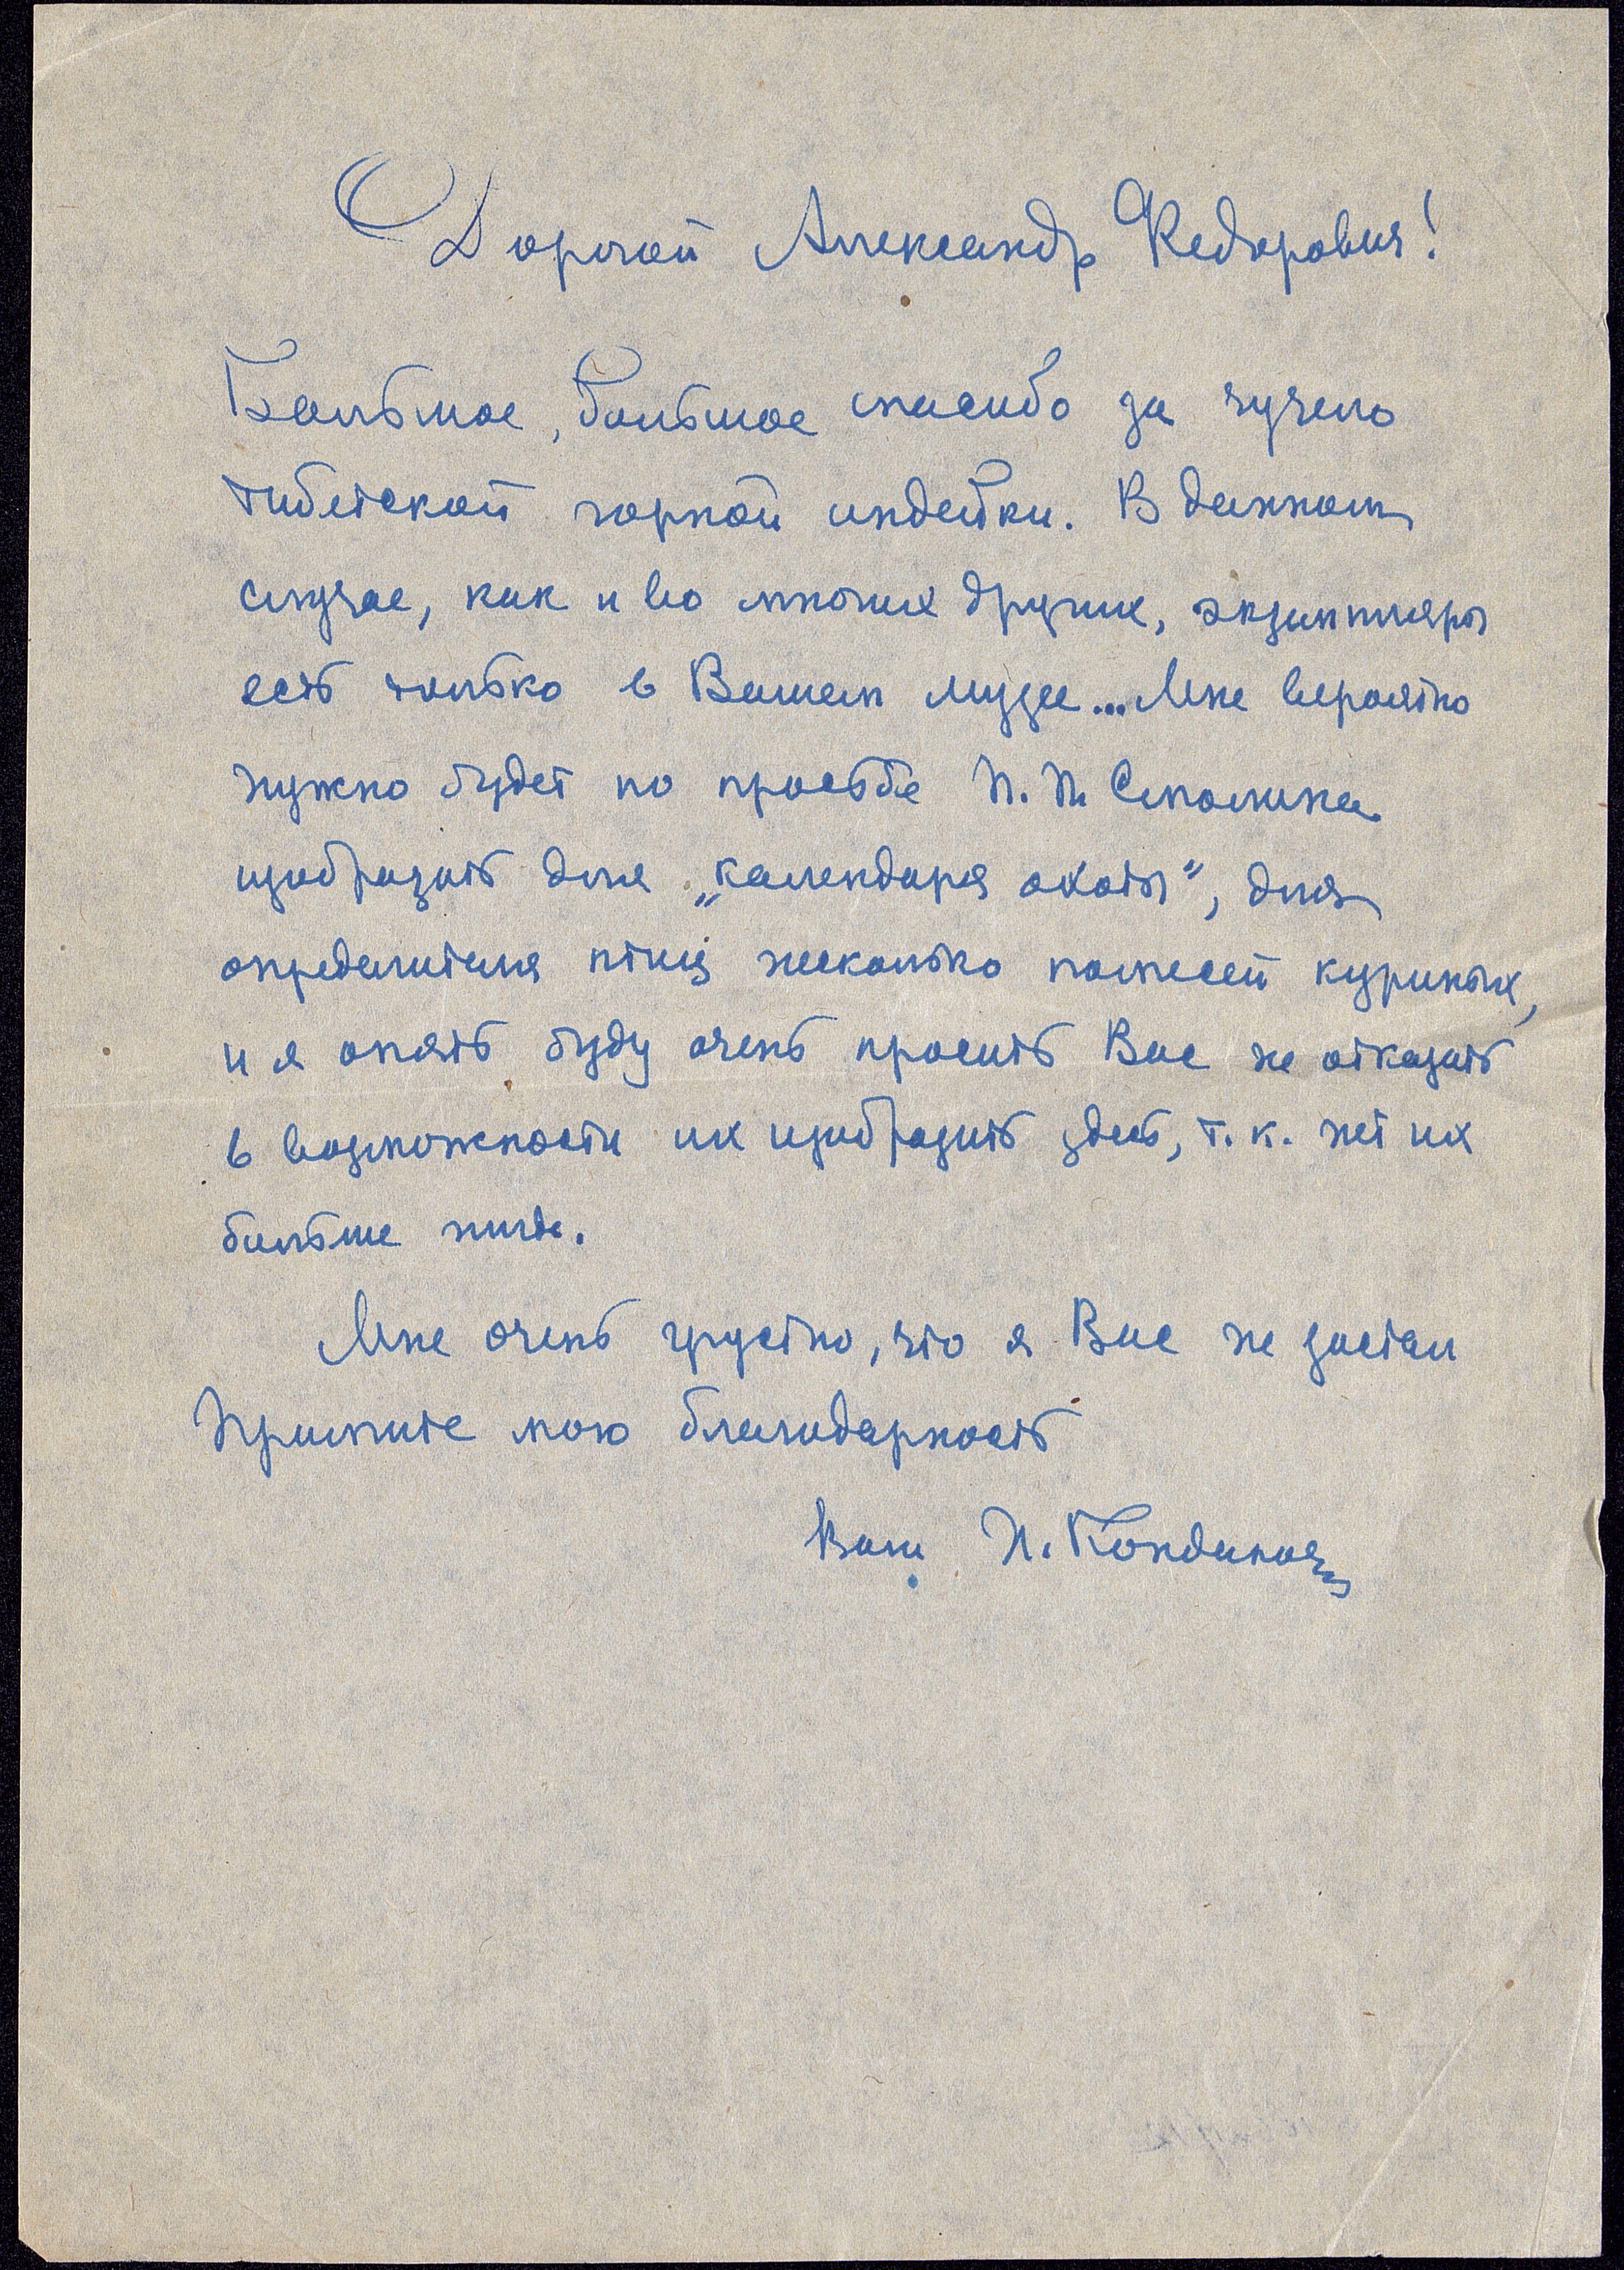 Дорогой Александр Федорович!
Большое, большое спасибо за чучело
тибетской горной индейки. В данном
случае, как и во многих других, экземпляры
есть только в Вашем музее... Мне вероятно
нужно будет по просьбе П. П. Смолина
изобразить для „календаря охоты“, для
определителя птиц несколько помесей куриных,
и я опять буду очень просить Вас не отказать
в возможности их изобразить здесь, т. к. нет их
больше нигде.
Мне очень грустно, что я Вас не застал
Примите мою благодарность
Ваш Н. Кондаков